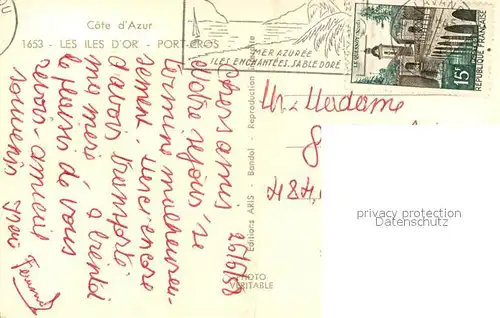 Côte d'Azur
1653 - LES ILES D'OR - PORT-CROS
MER AZURÉE
ILES ENCHANTÉES, SABLE DORÉ
15F
POSTES
REPUBLIQUE FRANÇAISE
25/5/58
Chers amis
Notre séjour se
termine malheureu-
sement. Merci encore
d'avoir transporté
ma mère, à bientôt
le plaisir de vous
revoir - amical
souvenir
Editions ARIS - Bandol - Reproduction
PHOTO
VERITABLE
M. Madame
8
484,
privacy protection
Datenschutz